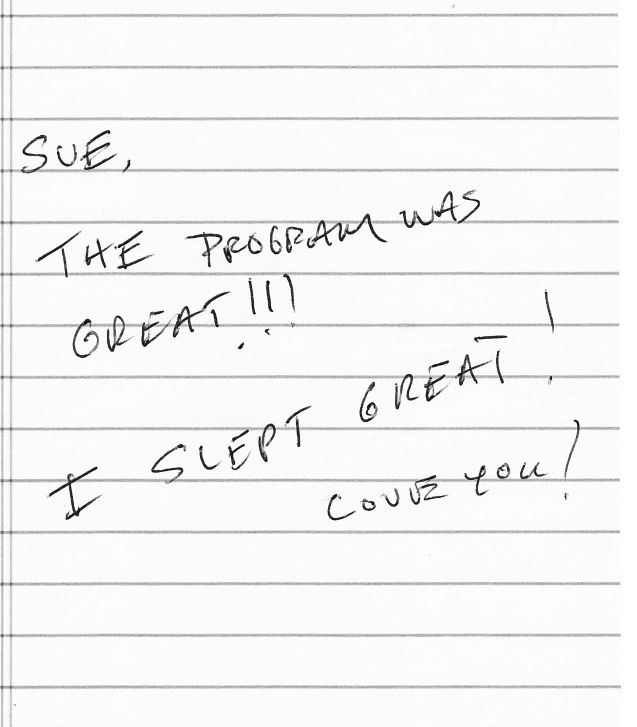 SUE,
THE PROGRAM WAS
GREAT!!!
I SLEPT GREAT!
LOVE YOU!